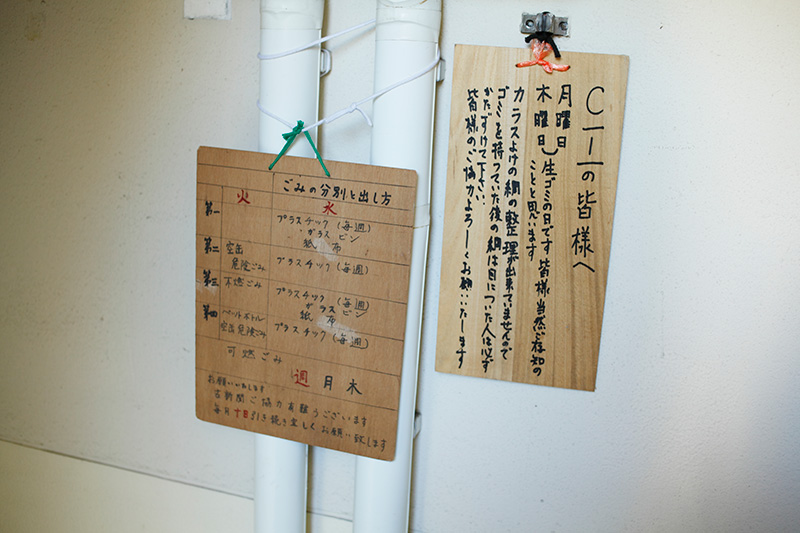 ごみの分別と出し方
火 水
第一 プラスチック(毎週)
ガラス ビン
紙 布
第二 空缶 危険ごみ プラスチック(毎週)
第三 不燃ごみ プラスチック(毎週)
ガラス ビン
紙 布
第四 ペットボトル
空缶 危険ごみ プラスチック(毎週)
可燃ごみ
週 月 木
お願いいたします
古新聞ご協力有難うございます
毎月十日引き続き宜しくお願い致します
の皆様へ
月曜日
木曜日
生ゴミの日です 皆様当然ご存知の
ことと思います
カラスよけの網の整理が出来ていませんので
ゴミを持っていた後の網は目についた人は必ず
かたずけて下さい
皆様のご協力よろしくお願いいたします